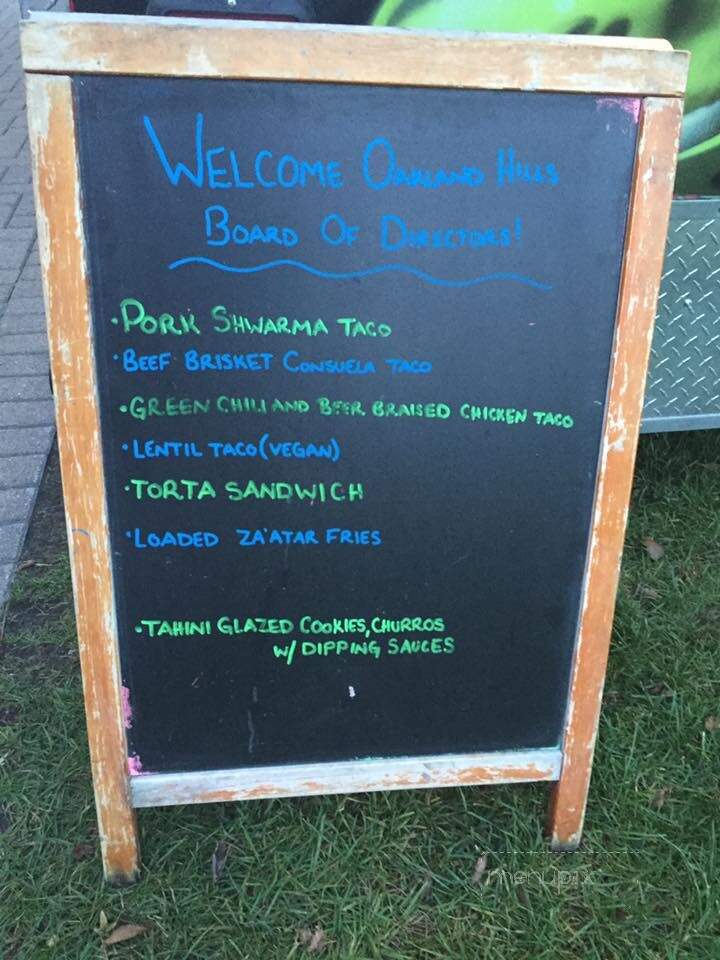 WELCOME OAKLAND HILLS
BOARD OF DIRECTORS!
·PORK SHWARMA TACO
·BEEF BRISKET CONSUELA TACO
·GREEN CHILI AND BEER BRAISED CHICKEN TACO
·LENTIL TACO (VEGAN)
·TORTA SANDWICH
·LOADED ZA'ATAR FRIES
·TAHINI GLAZED COOKIES, CHURROS
W/ DIPPING SAUCES
menupix